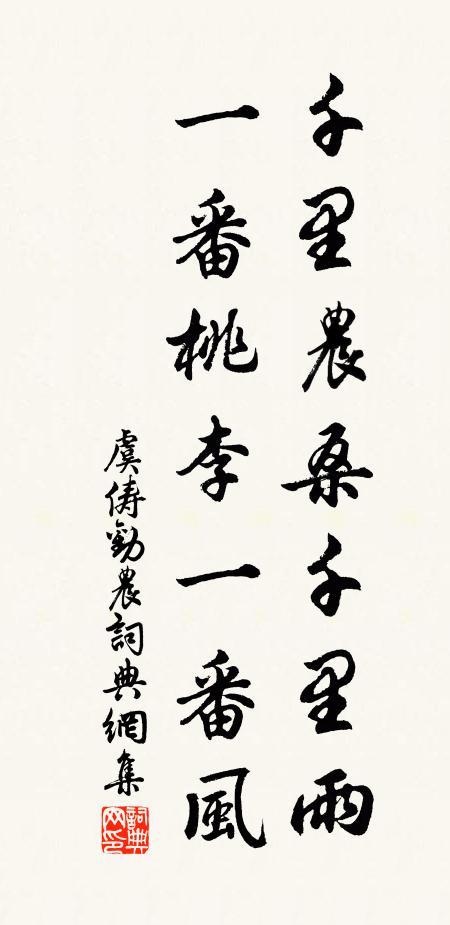 千里農桑千里雨
一番桃李一番風
虞儔勸農詞典網集
詞典
网印